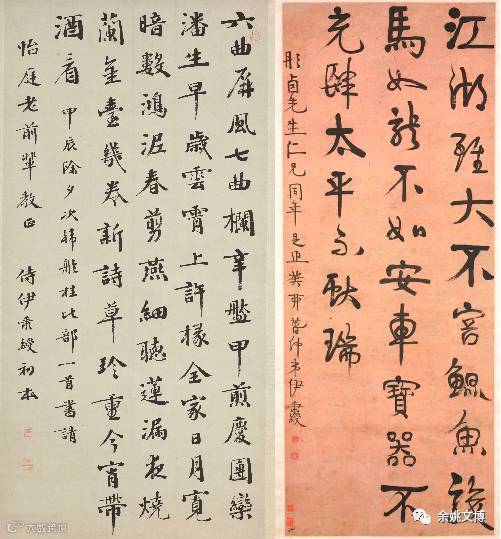 江湖雖大不容鯤魚
馬如龍不如安車寶器不
充肆太平不獻瑞
彤貞先生仁兄同年是正 弟伊秉綬
六曲屏風七曲欄辛盤甲煎慶團欒
潘生早歲雲霄上許椽全家日月寬
暗數鴻泥春剪燕細聽蓮漏夜燒
蘭金臺幾卷新詩草珍重今宵帶
酒看 甲辰除夕次韓舲桂比部一首書請
怡庭老前輩教正 侍伊秉綬初本
大数跨境
余姚文博